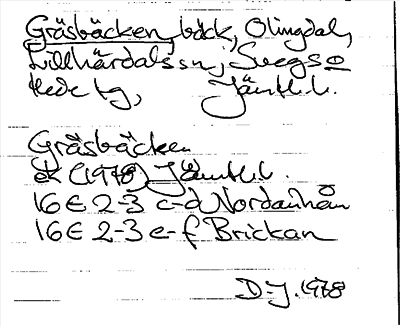 Gräsbäcken, bäck, Olingdal,
Lillhärdals sn, Svegs o
Hede tg, Jämtl. l.
Gräsbäcken
ek (1978) Jämtl. l.
16E 2-3 c-d Nordanhån
16E 2-3 e-f Brickan
D-J. 1978